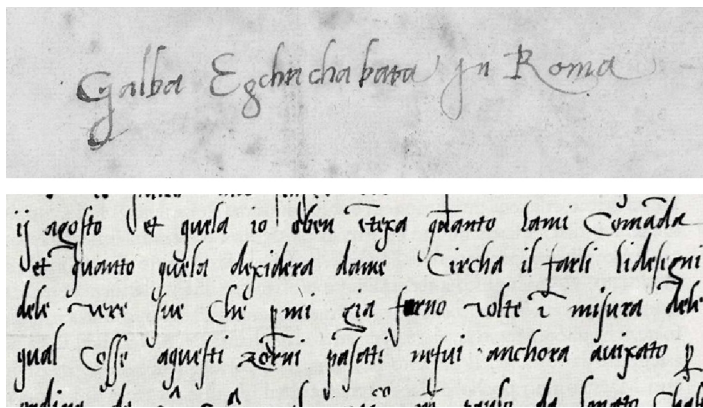 Galba Egchrichabara jn Roma
ij agosto et quela io oben ītexa quanto lami Comāda
et quanto quela dexidera dame Circha il farli lidesegni
dele vere sue che p mi gia forno volte ī misura dele
qual Cosse aquesti zorni pasati ne fui anchora auixato p
de paulo da